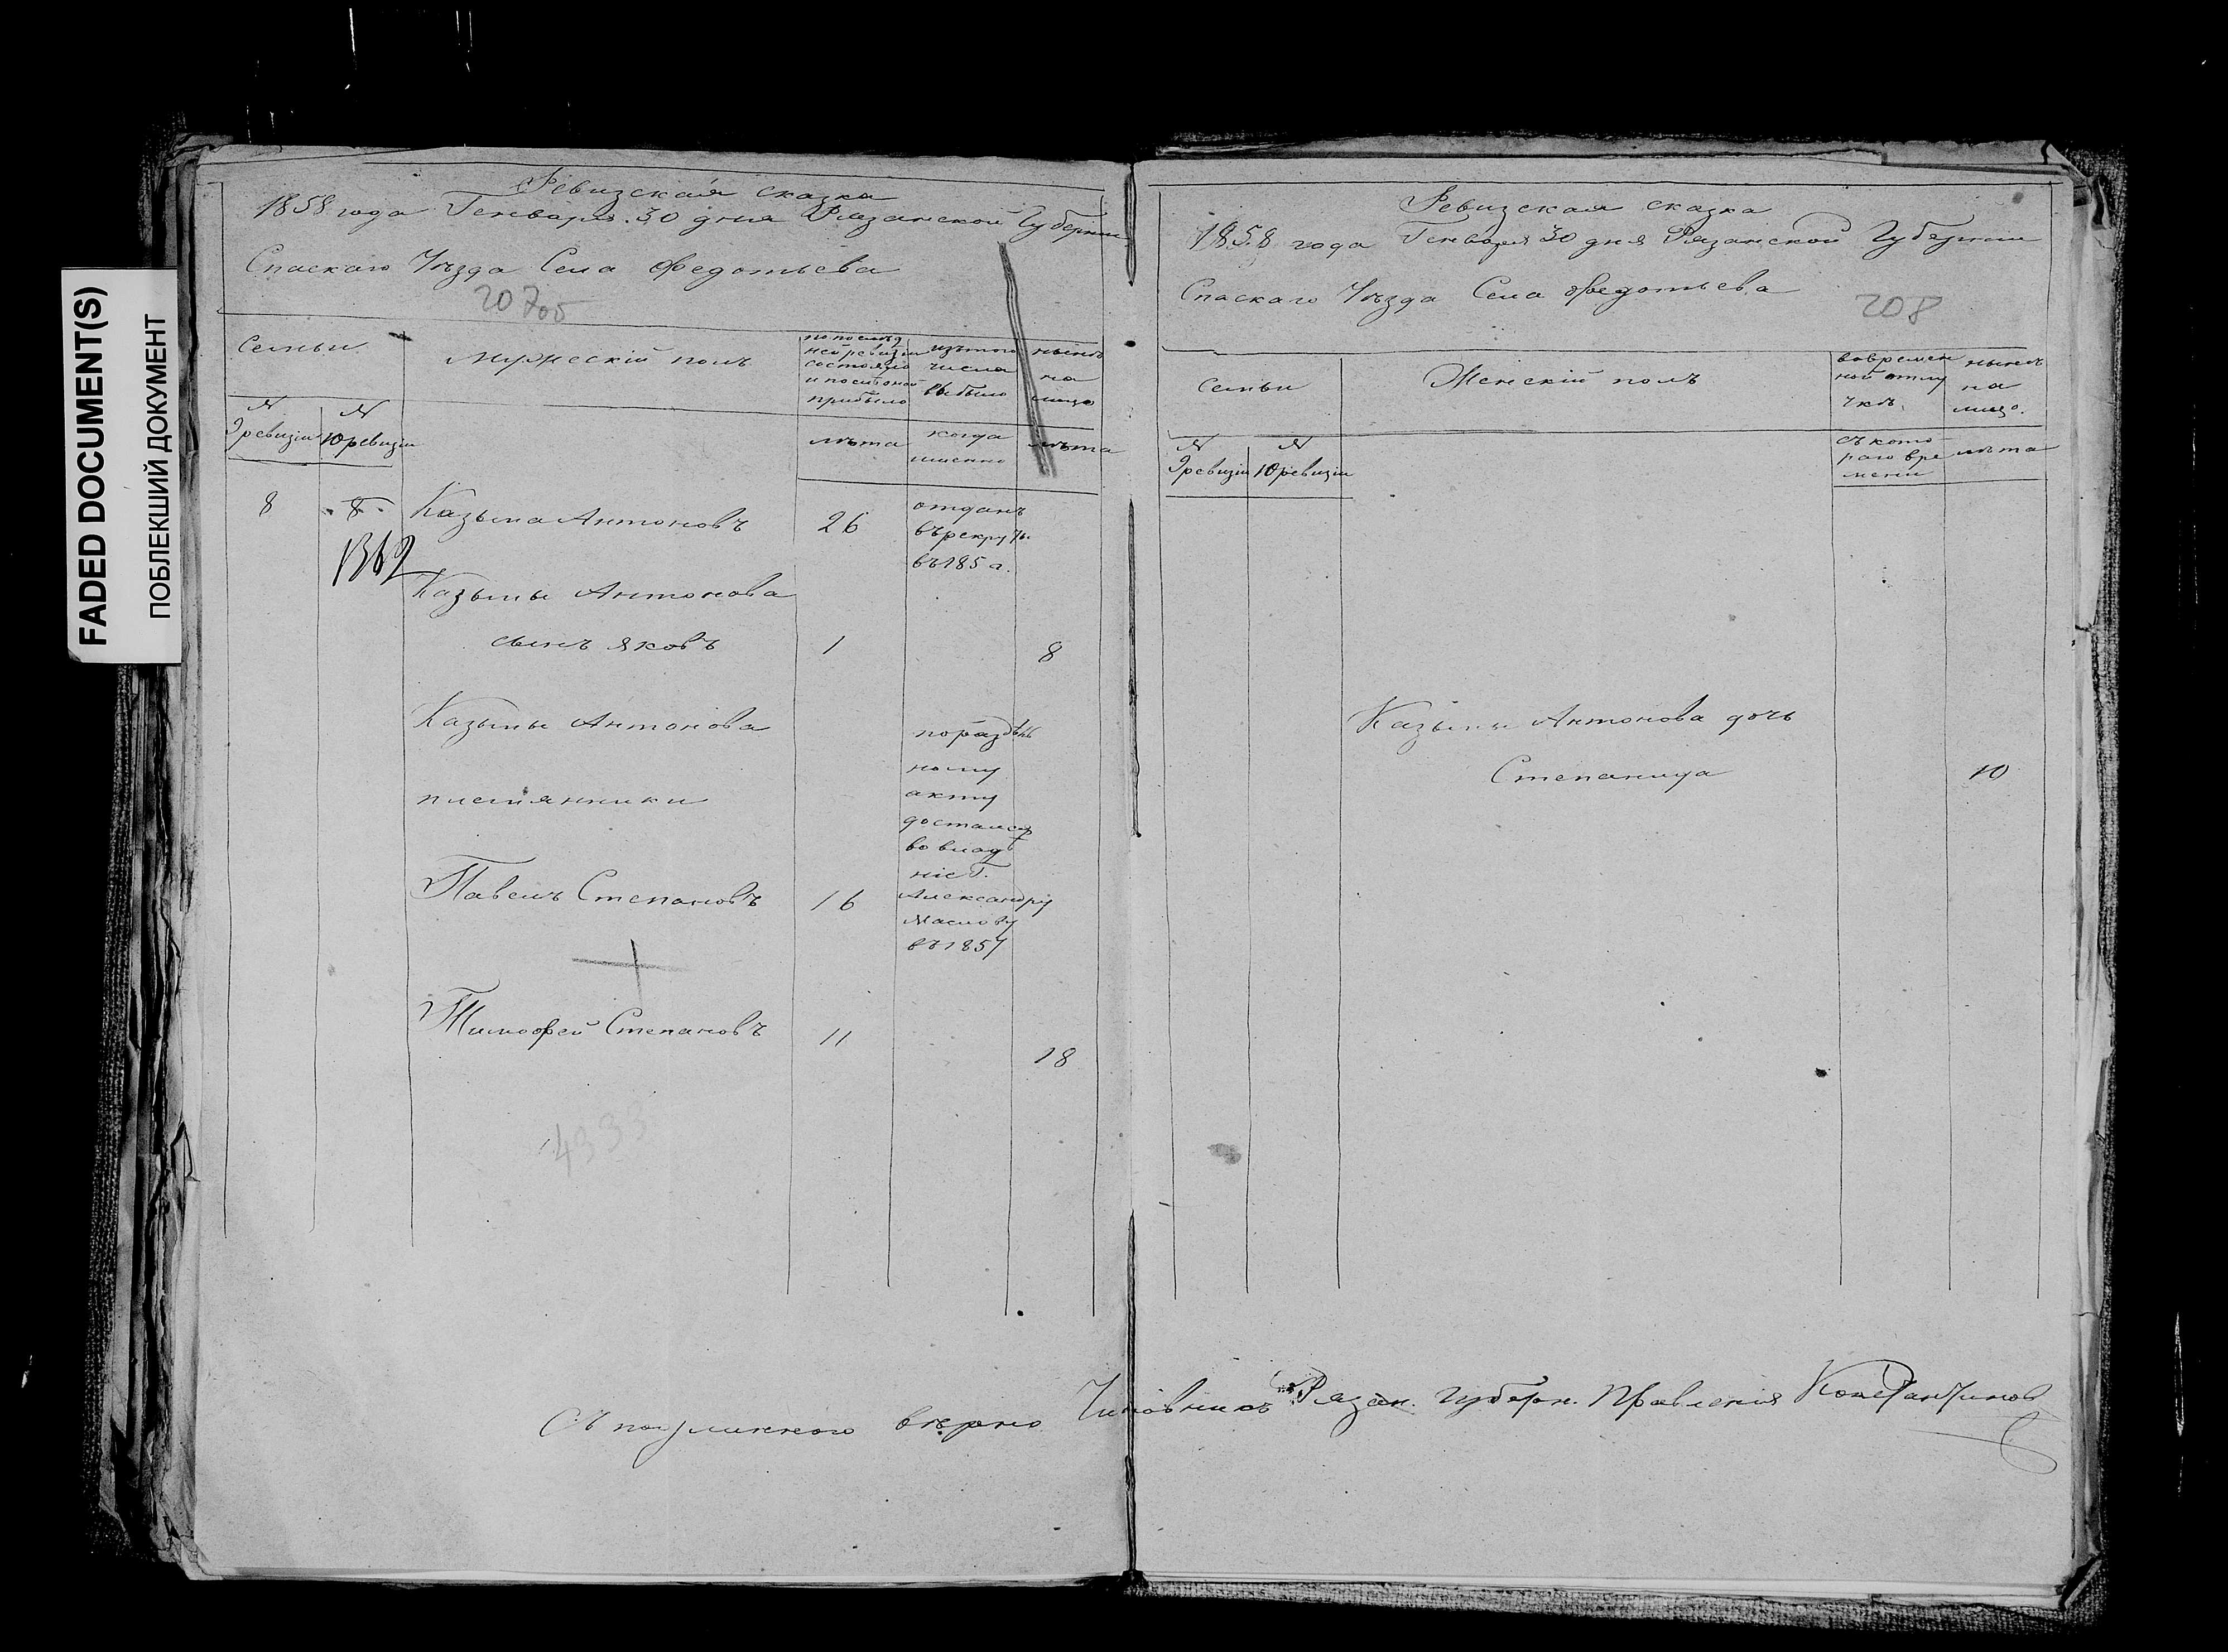 FADED DOCUMENT(S)
ПОБЛЕКШИЙ ДОКУМЕНТ
Ревизская сказка
1858 года Генваря 30 дня Рязанской Губернии
Спаскаго Уѣзда Села Федотьева
207об
Семьи
Мужескій полъ
по послѣд
ней ревизіи
состояло
и после оной
прибыло
изъ того
числа
выбыло
нынѣ
на
лицо
№
9 ревизіи
№
10 ревизіи
лѣта
когда
именно
лѣта
8
8
1362
Казьма Антоновъ
26
отданъ
въ рекруты
въ 185
Казьмы Антонова
сынъ Яковъ
1
8
Казьмы Антонова
племянники
по раздѣль
ному
акту
достался
во влад
ніе Г.
Александру
Маслову
въ 1857
Павелъ Степановъ
16
Тимофей Степановъ
11
18
4333
Съ подлиннымъ вѣрно Чиновникъ Рязан. Губерн. Правленія Константинов
Ревизская сказка
1858 года Генваря 30 дня Рязанской Губернии
Спаскаго Уѣзда Села Федотьева
208
Семьи
Женскій полъ
во времен
ной отлу
чкѣ
нынѣ
на
лицо.
№
9 ревизіи
№
10 ревизіи
съ кото
раго вре
мени
лѣта
Казьмы Антонова дочь
Степанида
10